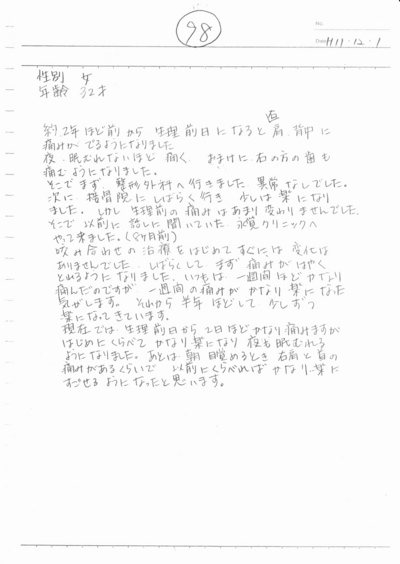 98
No.
Date H11・12・1
性別 女
年齢 32才
約2年ほど前から 生理前日になると肩、背中に
痛みがでるようになりました
夜、眠むれないほど痛く、おまけに、右の方の歯も
痛むようになりました。
そこでまず 整形外科へ行きました、異常なしでした。
次に 接骨院に しばらく行き 少しは楽になり
ました。しかし生理前の痛みはあまり変わりませんでした、
そこで以前に話しに聞いていた クリニックへ
やって来ました。(8ヶ月前)
咬み合わせの治療をはじめてすぐには変化は
ありませんでした、しばらくして、まず痛みがはやく
とれるようになりました、いつもは一週間ほどかなり
痛んだのですが 一週間の痛みがかなり楽になった
気がします。それから半年ほどして少しずつ
楽になってきています。
現在では生理前日から2日ほどかなり痛みますが
はじめにくらべて かなり楽になり 夜も眠むれる
ようになりました。あとは朝目覚めるとき右肩と首の
痛みがあるくらいで 以前にくらべればかなり楽に
すごせるようになったと思います。